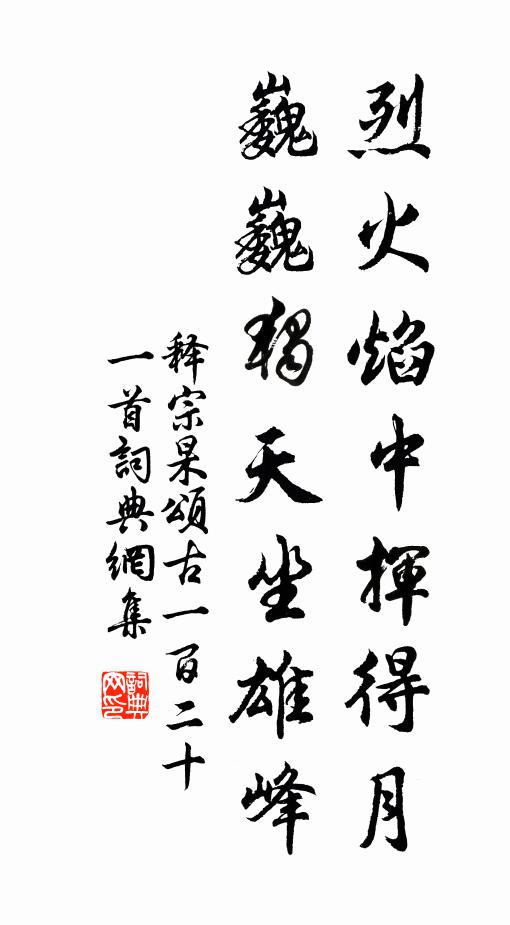 烈火焰中揮得月
巍巍獨天坐雄峰
释宗杲頌古一百二十
一首詞典網集
詞典网印